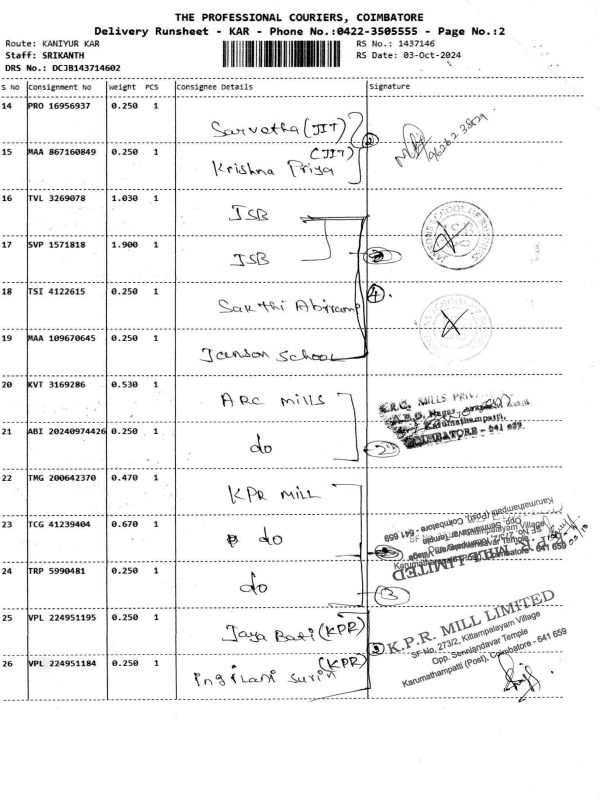 THE PROFESSIONAL COURIERS, COIMBATORE
Delivery Runsheet - KAR - Phone No.:0422-3505555 - Page No.:2
Route: KANIYUR KAR
RS No.: 1437146
Staff: SRIKANTH
RS Date: 03-Oct-2024
DRS No.: DCJB143714602
S No Consignment No Weight PCS Consignee Details Signature
14 PRO 16956937 0.250 1
Sarvetha (JIT)
2
15 MAA 867160849 0.250 1
(JIT)
Krishna Priya
16 TVL 3269078 1.030 1
JSB
17 SVP 1571818 1.900 1
JSB
18 TSI 4122615 0.250 1
Sakthi Abirami
4.
19 MAA 109670645 0.250 1
Janson School
20 KVT 3169286 0.530 1
ARC Mills
MILLS
Karumathampatti,
COIMBATORE - 641 659
21 ABI 20240974426 0.250 1
do
22 TMG 200642370 0.470 1
KPR MILL
23 TCG 41239404 0.670 1
do
Karumathampatti (Post), Coimbatore - 641 659
Opp. Senniandavar Temple
24 TRP 5990481 0.250 1
do
3
25 VPL 224951195 0.250 1
Jaya Bati (KPR)
26 VPL 224951184 0.250 1
(KPR)
K.P.R. MILL LIMITED
SF No, 273/2, Kittampalayam Village
Opp. Senniandavar Temple
Karumathampatti (Post), Coimbatore - 641 659